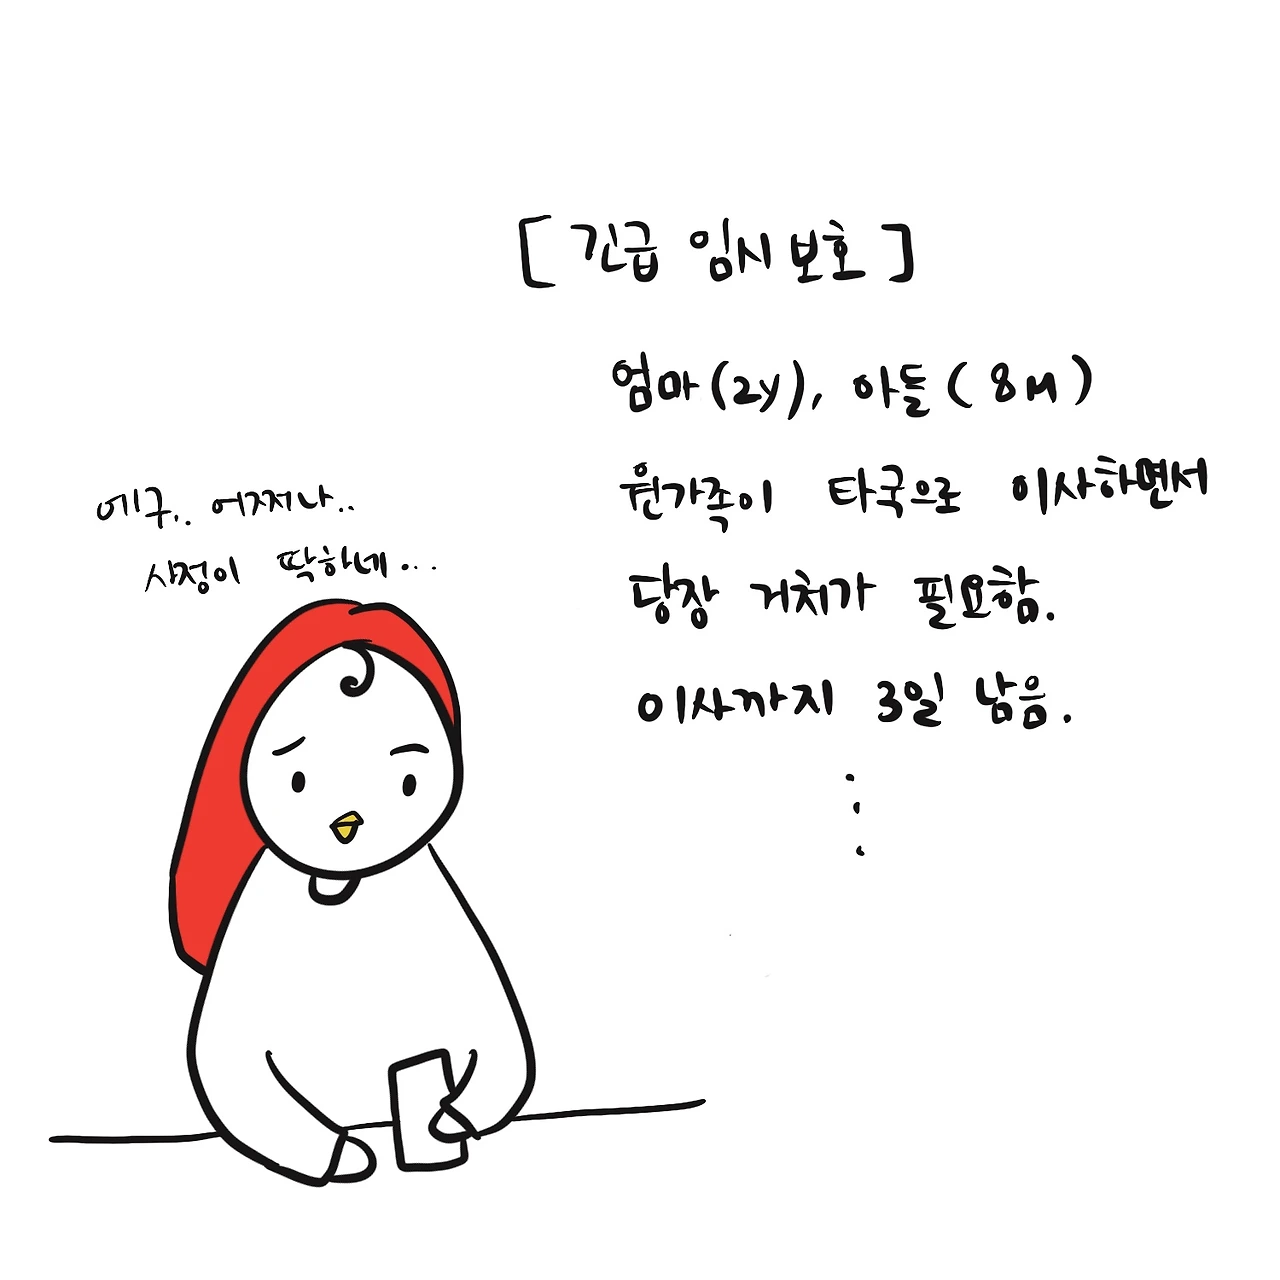 [긴급 임시보호]
엄마(2y), 아들(8M)
원가족이 타국으로 이사하면서
당장 거처가 필요함.
이사까지 3일 남음.
에구.. 어쩌나..
사정이 딱하네...